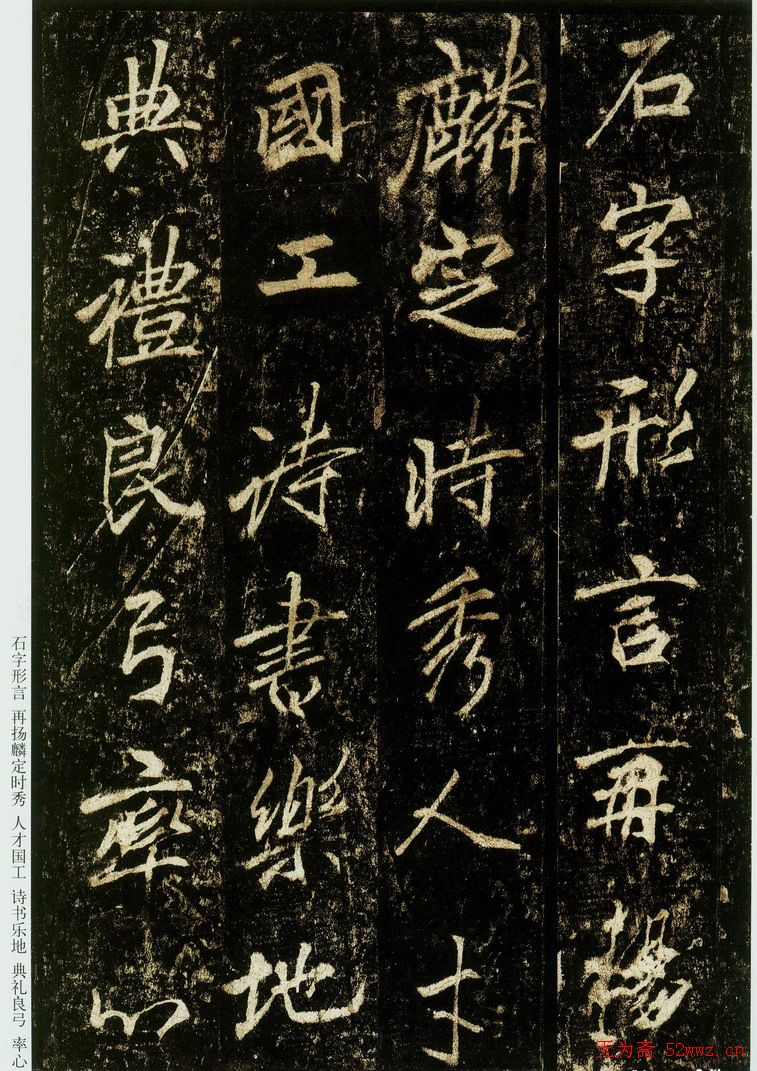 石字形言再楊
麟定時秀人才
國工詩書樂地
典禮良弓率心
石字形言 再扬麟定时秀 人才国工 诗书乐地 典礼良弓 率心
无为斋 52wwz.cn